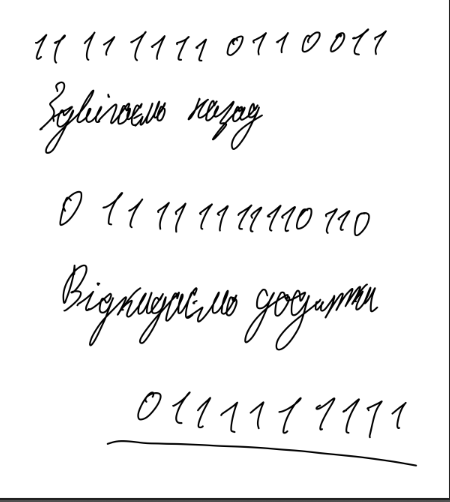 11 11 1111 0110011
Здвігаємо назад
0 11 11 1111110 110
Відкидаємо додатки
011111 1111